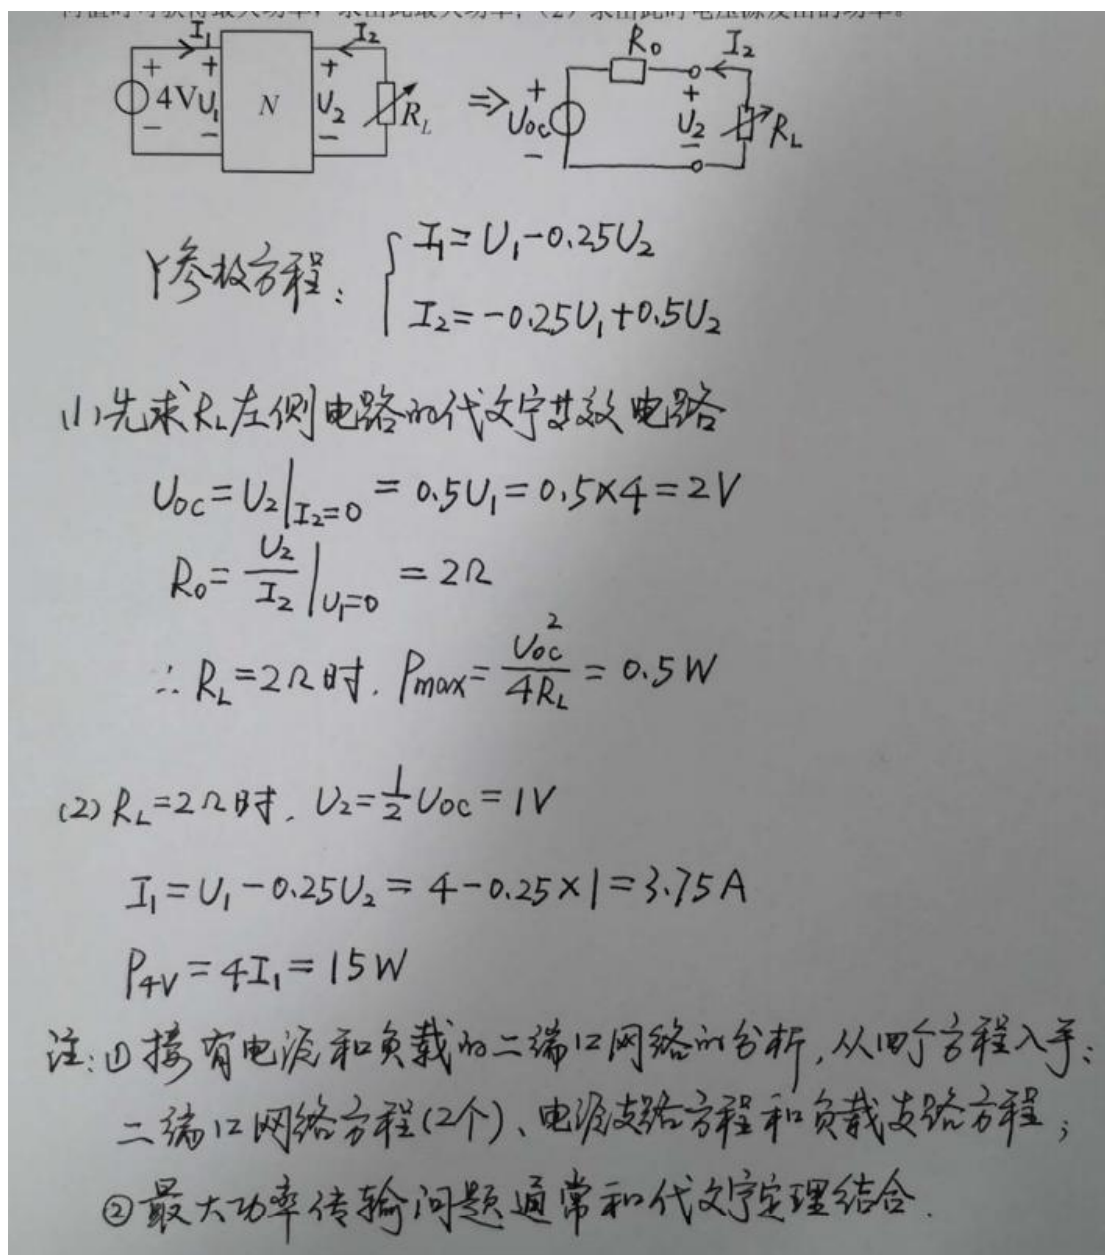 I₁ I₂ R₀ I₂
+ 4V − + U₁ − N + U₂ − R_L ⇒ + Uoc − + U₂ − R_L
Y参数方程: { I₁=U₁-0.25U₂
I₂=-0.25U₁+0.5U₂
(1)先求R_L左侧电路的代文宁等效电路
Uoc=U₂|I₂=0 = 0.5U₁=0.5×4=2V
R₀= U₂/I₂ |U₁=0 =2Ω
∴ R_L=2Ω时. Pmax= Uoc²/4R_L = 0.5W
(2) R_L=2Ω时. U₂=1/2 Uoc=1V
I₁=U₁-0.25U₂= 4-0.25×1=3.75A
P4V=4I₁=15W
注:①接有电源和负载的二端口网络的分析,从四个方程入手:
二端口网络方程(2个)、电源支路方程和负载支路方程;
②最大功率传输问题通常和代文宁定理结合.